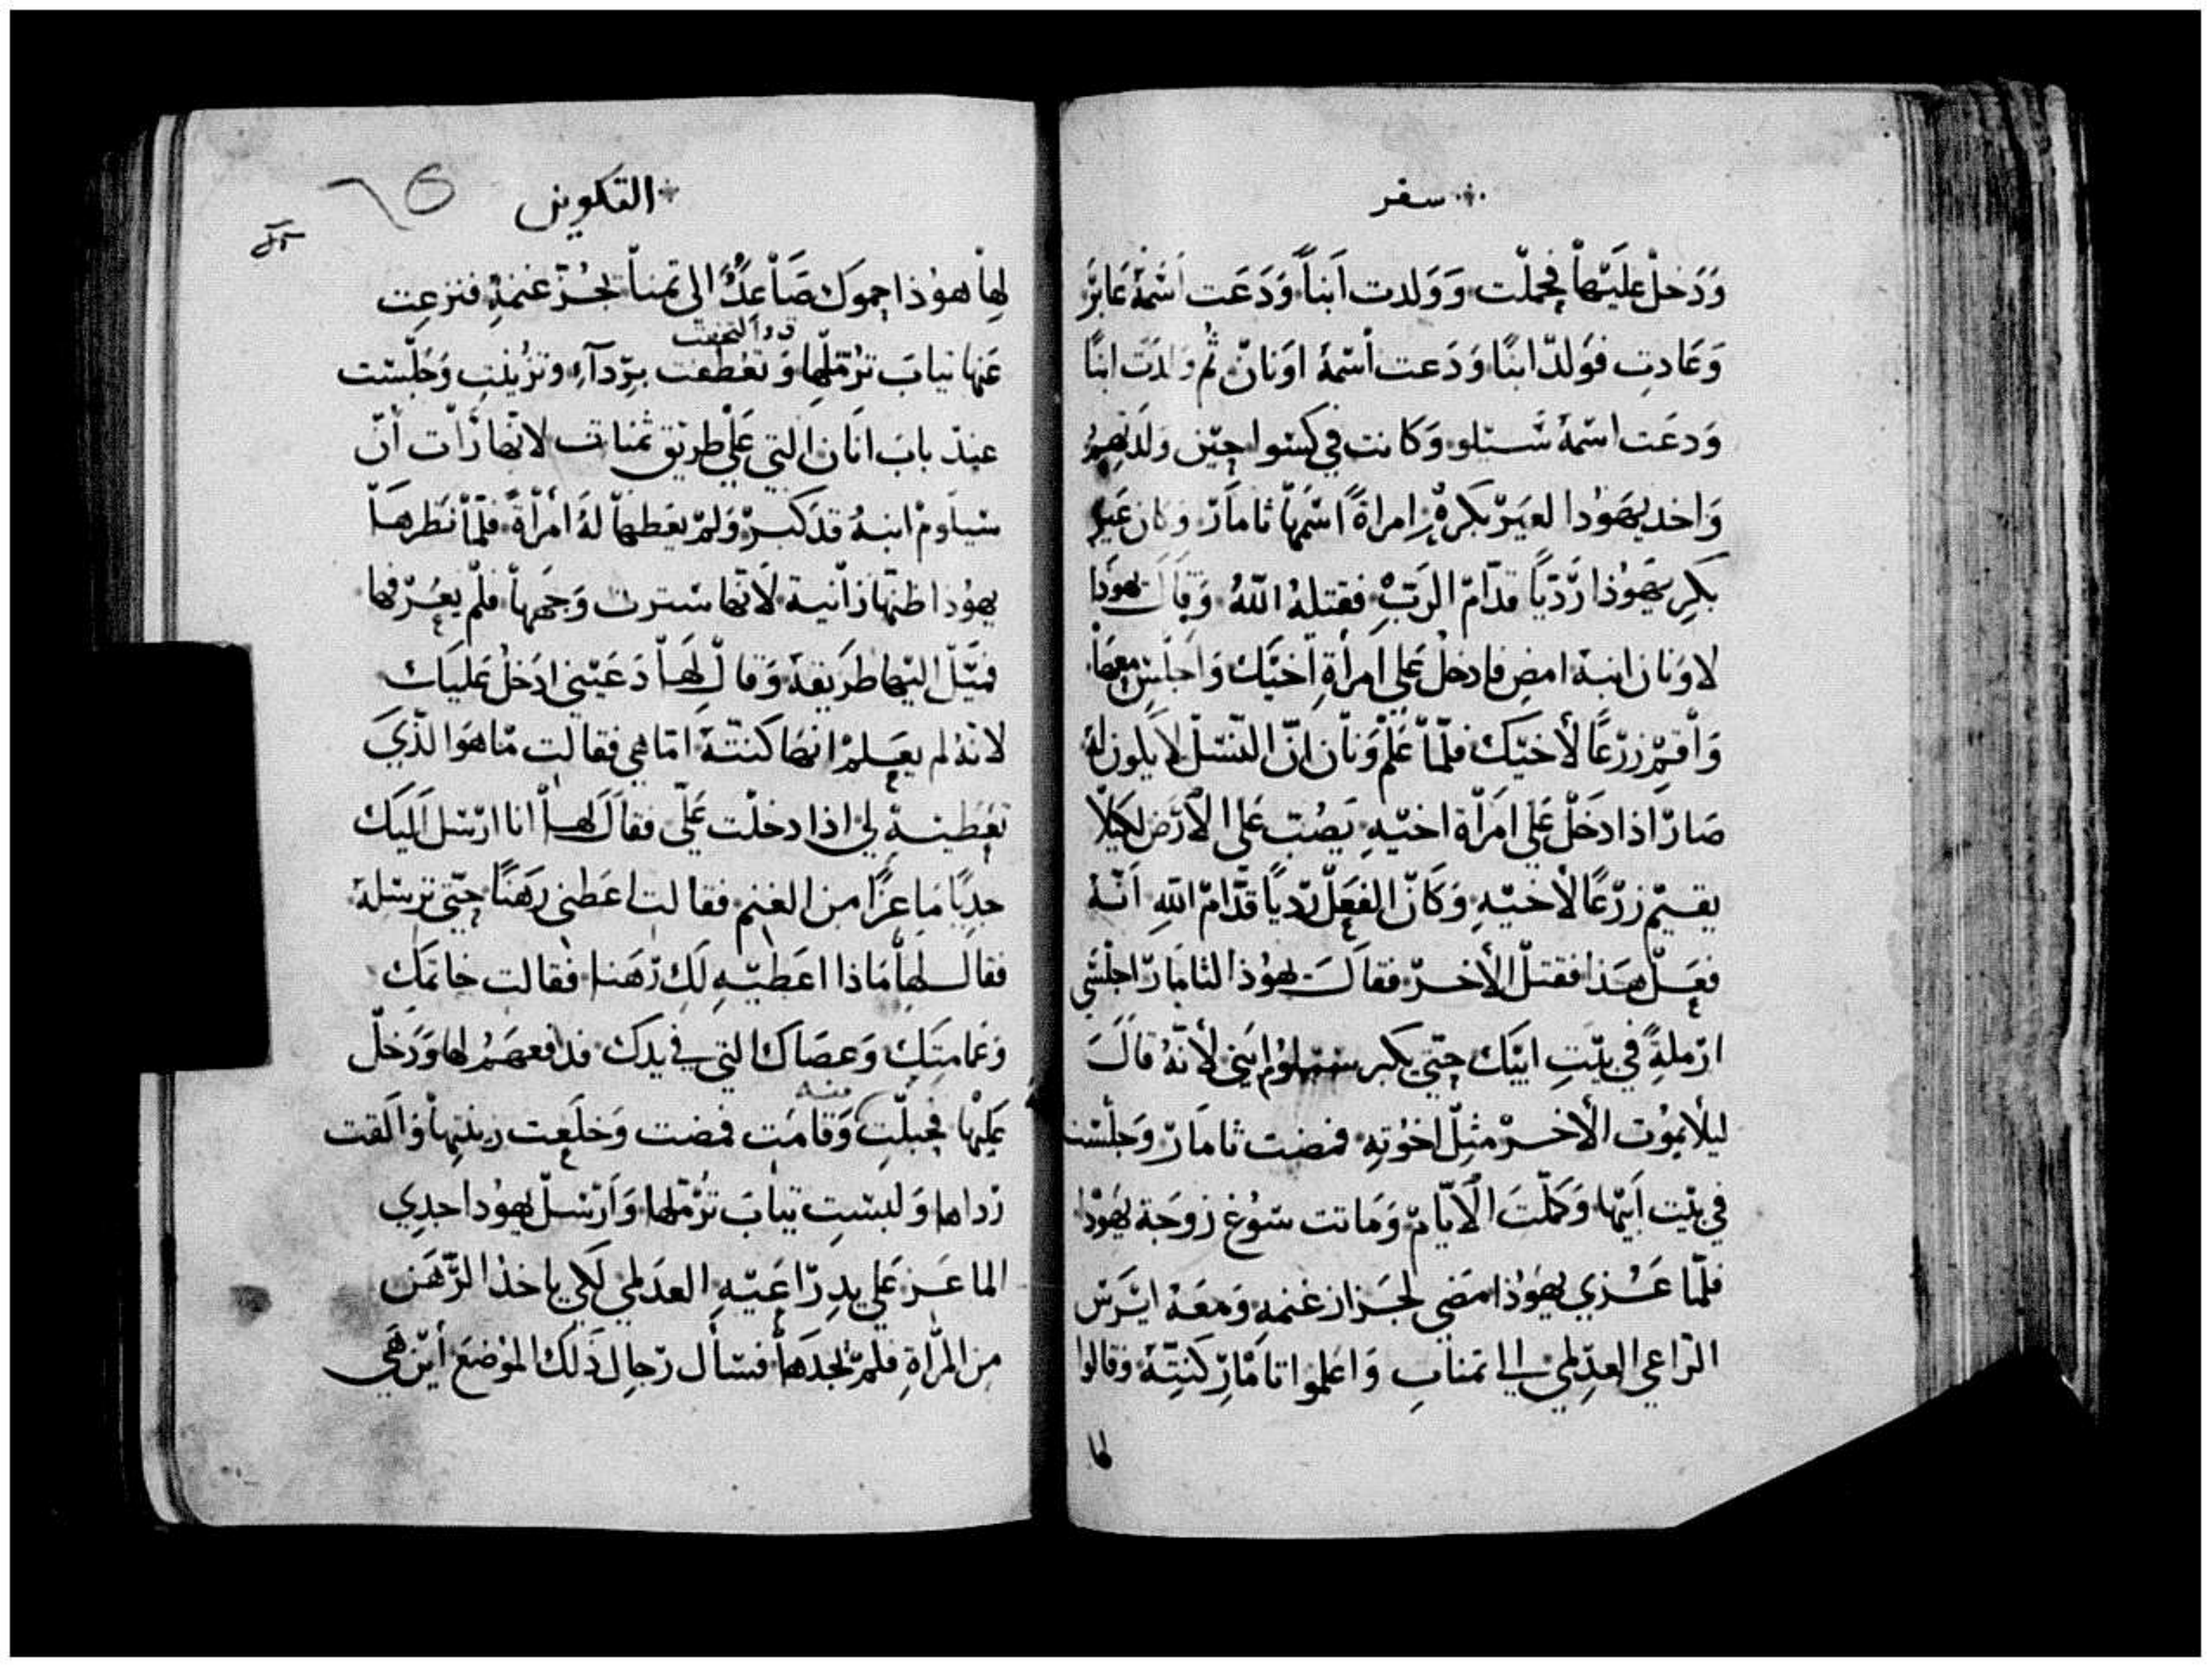 سفر
وَدَخلْ عليَهاْ فحملّت وَوَلدت اَبناً وَدَعَت اَسْمهُ عَابرَ
وَعَادتِ فوَلدّ ابنًا وَدَعت اْسْمهُ اوَنانّ ثُم وَلدَت ابنًا
وَدعَت اسْمهُ شَيلو وَكانت في كسْوا حِيْن وَلدَتهمُ
وَاخد يَهوُدا لعيَرْ بكرهُ امراةً اسْمهاّ ثامَارّ وكان عَير
بكرِ يهَوُذا رَّدّيًا قدّام الرَبّ فقتلهُ اللّهُ وَقالَ يهوَدا
لاوَنان ابنهُ امضِ فادخلْ عَلي اَمرأةِ اَخيَّك وَاَجلّسْ معهَا
وَاْقمّ زرّعًا لأخيّك فلّماْ عَلمْ وَنانّ انّ النّسْلّ لا يكون لهُ
صَارّ اذا دَخَلْ عَلي امَرأّة اخيّهِ يَصُبّ عَلي الأَرَض لكيلاّ
يقيمّ زرّعًا لأخيّهِ وَكَانّ الفعَلّ رّديًا قدّامّ اللّهِ اَنّهُ
فعَلّ هذا فقتلّ الأخرّ فقالَ يهوُذا لثامَارّ اجلسَّي
ارّملةً في بيّتِ ابيَّك حتّي يكبر سيلوُم ابَني لأنّهُ قالَ
ليلأ يموُت الأخرّ مثلّ اخوُتهِ فمضت ثامَارّ وَجلسْت
في بيّت اَبيهّا وَكملّتَ الأيّامّ وَماتت سوُع زوجَة يهوُدا
فلمّا عَزي يهَوُذا مَضي لجَزاز غنمهِ وَمعَهُ ايَرسّ
الرّاعي العدِلمي الي تمناتِ وَاعَلموا تامَارّ كنتّهُ وَقالوا
لها
التكوين
لهاْ هوُذا حموَك صَاْعدٌ الى تمناتْ لجُزّ غنمهِ فنزعت
قد والتحفت
عَنها تيابَ ترُملّها وَتعَطفت برّدآءِ وَتزُينتِ وَجَلّسْت
عندّ بابَ انَان التي عَلي طريق ثمنات لانّها رَاّت أنّ
سْيلوَم ابنهُ قدَ كبرّ وَلمّ يعَطهاّ لهُ اَمرْأةً فلّماْ نظرهاّ
يهوُدا ظنّها زاّنية لأَنّها سْترت وَجهَهاْ فلّم يعرّفها
فميّلّ اليّها طرَيقهُ وَقالّ لهَاّ دَعَيْني ادَخلْ عَليَك
لانّهُ لم يعَلمْ انهّا كنتّهُ امّا هي فقالت مّا هوَا لذّيَ
تعَطينهِ لي اذا دخلّت عَلّي فقالَ لهاْ انا ارْسْل اَليَك
جديًا مَاعزًا من الغنمِ فقالت اعَطني رَهَنًا حتّي ترسْلهُ
فقالَ لهاّ مَاذا اعَطيّهِ لَكِ رَّهَنا فقالت خاتمَك
وَعمامتِك وَعصَاك التي في يدَك فدَفعهَمُ لها وَدَخلّ
عَليهّا فحبلّتِ منه وَقامَت فمضت وَخلَعت زينتهاْ وَالَقت
رّداها وَلبسْتِ تيابَ تَرُمّلها وَاَرّسْلّ يهوُدا جدِي
الماعَز عَلي يدِ رّاعَيّهِ العدَلمي لكَي ياخذ الرَّهَن
مِن المرأةِ فلمّ يجدَهاْ فسْأل رّجال ذَلك الموُضعَ أيّن هَي